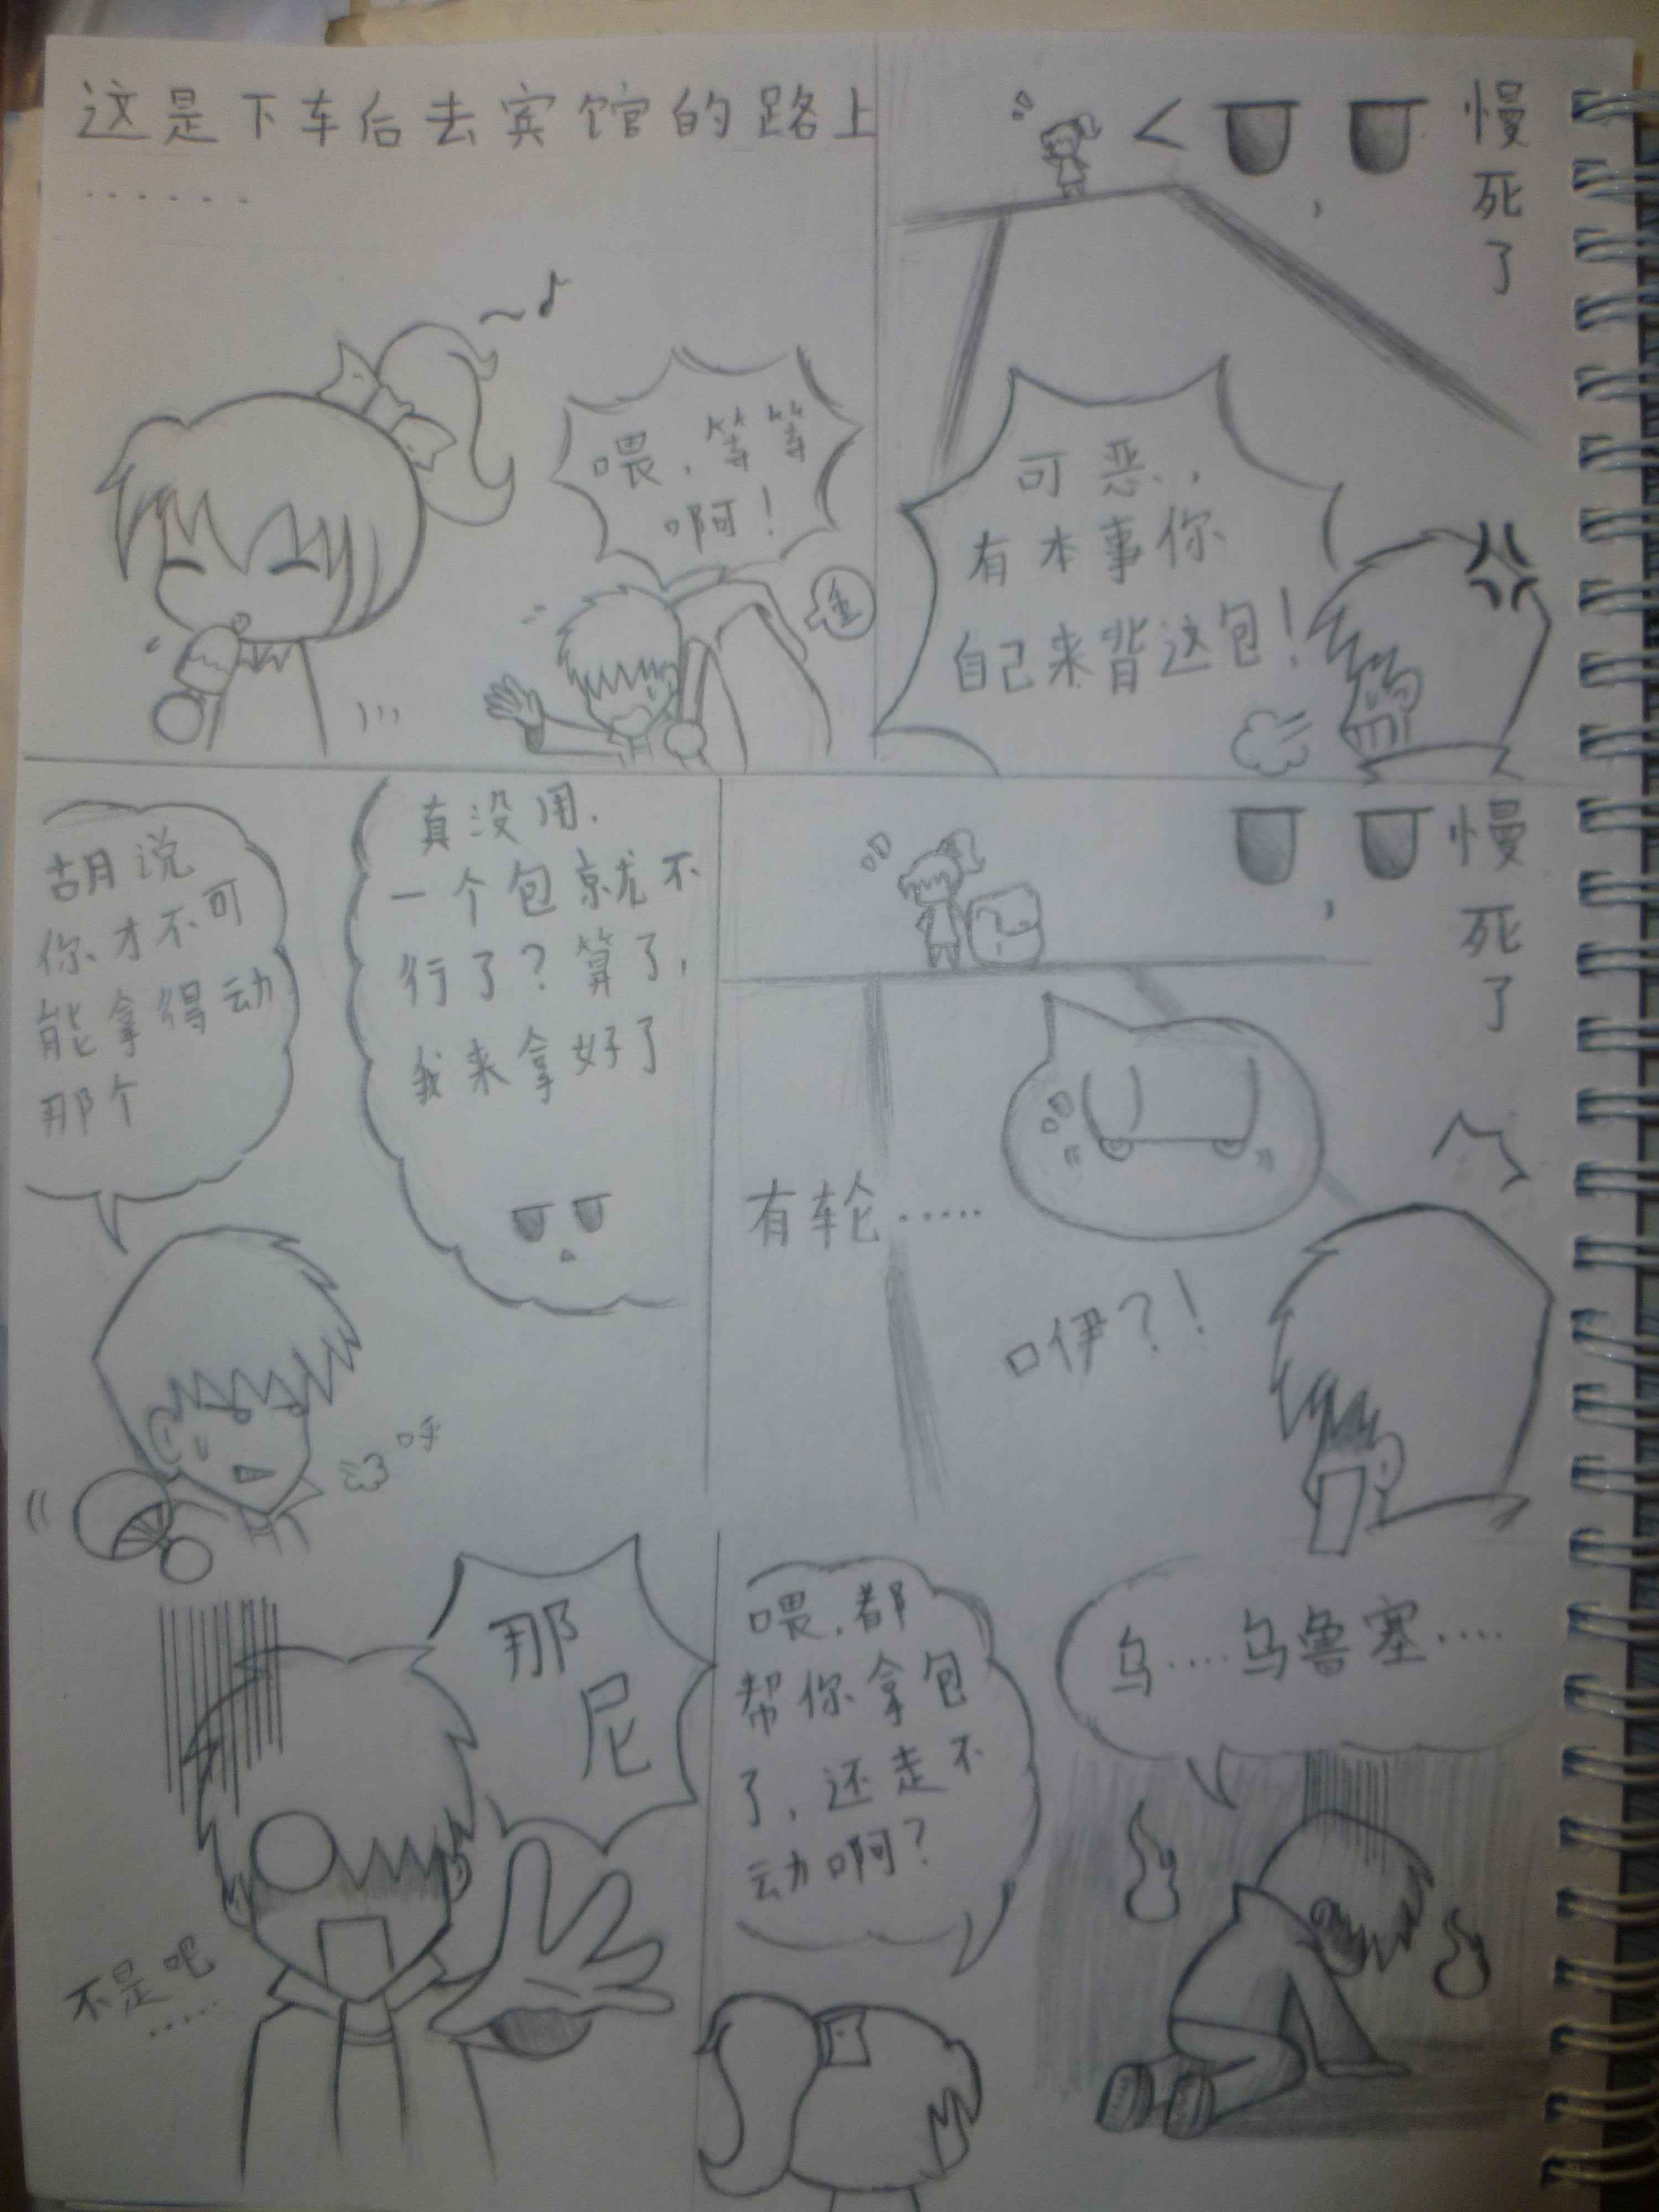 这是下车后去宾馆的路上
......
喂，等等
啊！
慢死了
可恶，
有本事你
自己来背这包！
真没用，
一个包就不
行了？算了，
我来拿好了
胡说
你才不可
能拿得动
那个
呼
慢死了
有轮.....
咿？！
那尼
不是吧
.....
喂，都
帮你拿包
了，还走不
动啊？
乌....乌鲁塞....